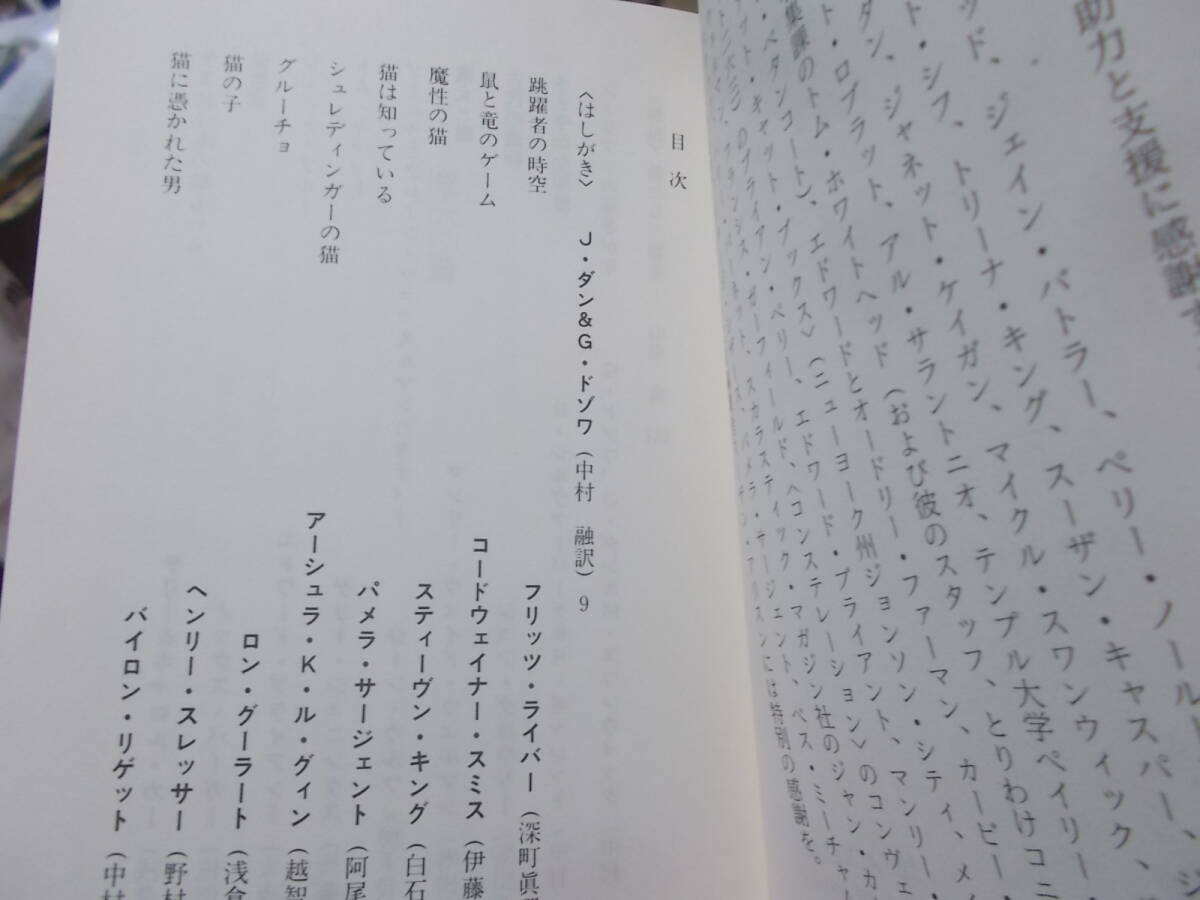 助力と支援に感謝す
ッド、ジェイン・バトラー、ペリー・ノール
ト・シフ、トリーナ・キング、スーザン・キャスパー、ジ
ダン、ジャネット・ケイガン、マイクル・スワンウィック、
ト・ロブラット、アル・サラントニオ、テンプル大学ペイリー・
集課のトム・ホワイトヘッド（および彼のスタッフ、とりわけコニ
・ベタンコート）、エドワードとオードリー・ファーマン、カービー・
フト・キャット・ブックス〉（ニューヨーク州ジョンソン・シティ、メイ
のブライアン・ペリー、エドワード・ブライアント、マンリー・
フランシス・ガーフィールド、〈コンステレーション〉のコンヴェ
ネット、スカラスティック・マガジン社のジャン・カ
パメラ・サージェント、ベス・ミーチャム
アリスンには特別の感謝を。
目次
〈はしがき〉 J・ダン&G・ドゾワ（中村 融訳） 9
跳躍者の時空 フリッツ・ライバー（深町眞
鼠と竜のゲーム コードウェイナー・スミス（伊藤
魔性の猫 スティーヴン・キング（白石
猫は知っている パメラ・サージェント（阿尾
シュレディンガーの猫 アーシュラ・K・ル・グィン（越智
グルーチョ ロン・グーラート（浅倉
猫の子 ヘンリー・スレッサー（野村
猫に憑かれた男 バイロン・リゲット（中村